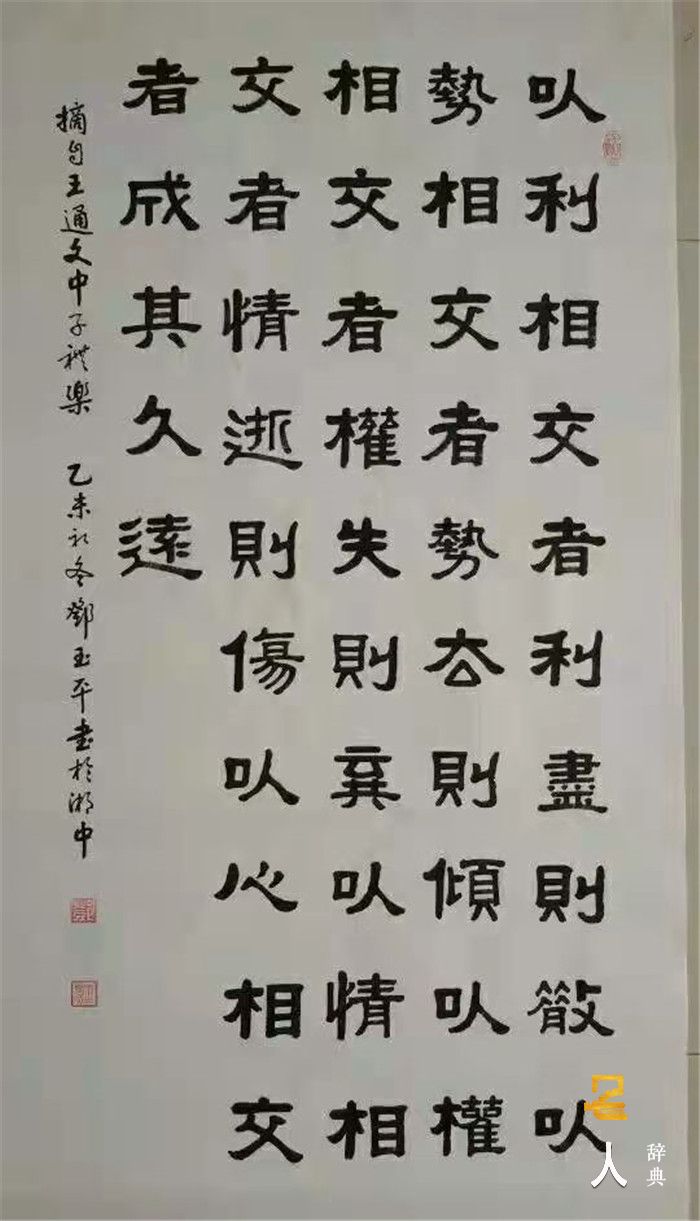 以利相交者利盡則散以
勢相交者勢去則傾以權
相交者權失則棄以情相
交者情逝則傷以心相交
者成其久遠
摘自王通文中子禮樂 乙未初冬鄧玉平書於湘中
名人
辞典